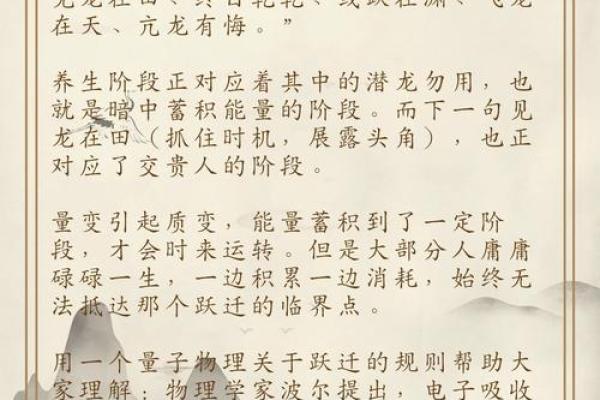 见龙在田、终日乾乾、或跃在渊、飞龙
在天、亢龙有悔。”
养生阶段正对应着其中的潜龙勿用，也
就是暗中蓄积能量的阶段。而下一句见
龙在田（抓住时机，展露头角），也正
对应了交贵人的阶段。
量变引起质变，能量蓄积到了一定阶
段，才会时来运转。但是大部分人庸庸
碌碌一生，一边积累一边消耗，始终无
法抵达那个跃迁的临界点。
用一个量子物理关于跃迁的规则帮助大
家理解：物理学家波尔提出，电子吸收